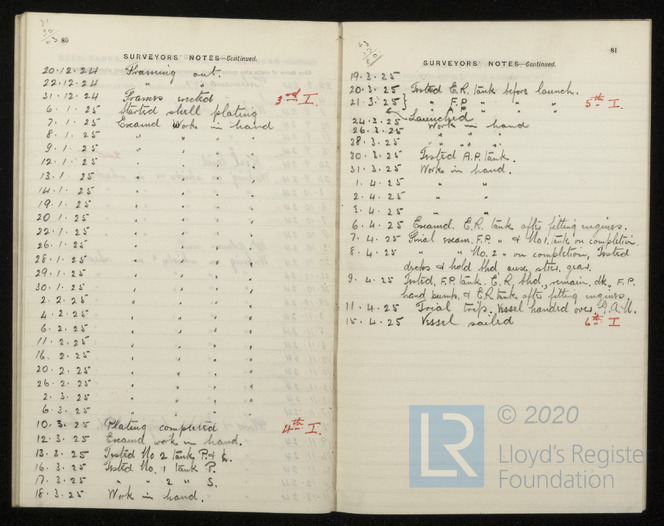 80
SURVEYORS' NOTES—Continued.
20.12.24 Framing out.
22.12.24 " "
31.12.24 Frames erected. 3rd I.
6.1.25 Started shell plating
7.1.25 Examd Work in hand
8.1.25 " " "
9.1.25 " " " "
12.1.25 " " " "
13.1.25 " " " "
14.1.25 " " " "
19.1.25 " " " "
20.1.25 " " " "
22.1.25 " " " "
26.1.25 " " " "
28.1.25 " " " "
29.1.25 " " " "
30.1.25 " " " "
2.2.25 " " " "
4.2.25 " " " "
6.2.25 " " " "
11.2.25 " " " "
16.2.25 " " " "
20.2.25 " " " "
26.2.25 " " " "
2.3.25 " " " "
6.3.25 " " " "
10.3.25 Plating completed 4th I.
12.3.25 Examd work in hand.
13.3.25 Tested No 2 tank P. & S.
16.3.25 Tested No. 1 tank P.
17.3.25 " " 2 " S.
18.3.25 Work in hand.
81
SURVEYORS' NOTES—Continued.
19.3.25
20.3.25 Tested E.R. tank before launch.
21.3.25 } " F.P. " " " 5th I.
Launched
24.3.25 Work in hand
26.3.25 " "
28.3.25 " "
30.3.25 Tested A.P. tank.
31.3.25 Work in hand.
1.4.25 " "
2.4.25 " "
3.4.25 " "
6.4.25 Examd. E.R. tank after fitting engines.
7.4.25 Final exam. F.P. " & No 1 tank on completion
8.4.25 " " No. 2 " on completion, Tested
decks & hold bhd, aux. steer. gear.
9.4.25 Tested, F.P. tank. E.R. bhd, remain. dk, F.P.
hand pump, & E.R. tank after fitting engines.
11.4.25 Trial trip. Vessel handed over. J.A.M.
15.4.25 Vessel sailed 6th I
LR
© 2020
Lloyd's Register
Foundation